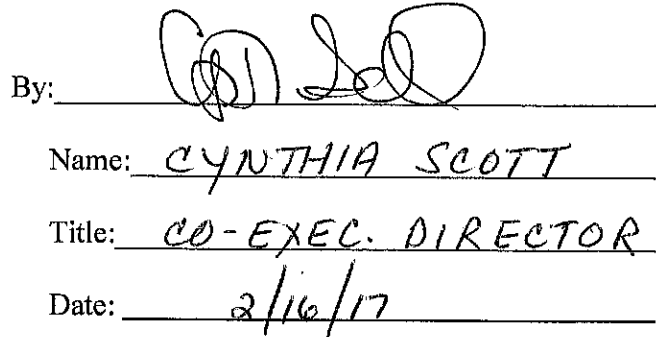 By:
Name: CYNTHIA SCOTT
Title: CO-EXEC. DIRECTOR
Date: 2/16/17